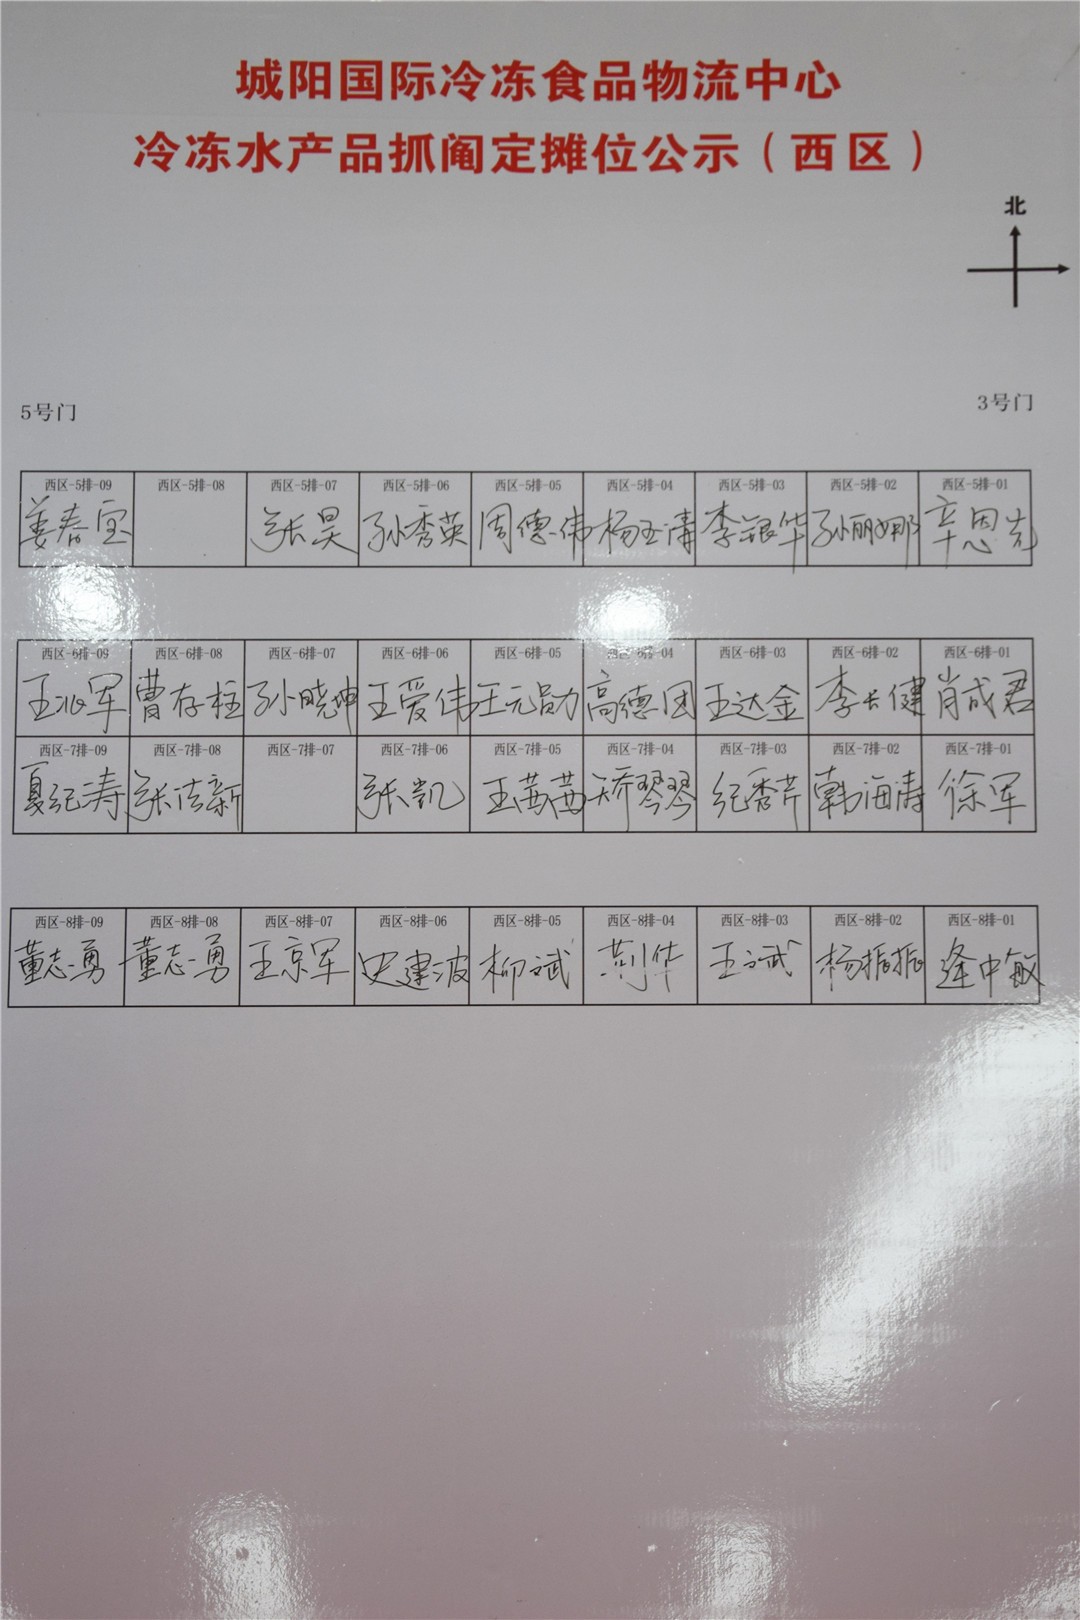 城阳国际冷冻食品物流中心
冷冻水产品抓阄定摊位公示（西区）
北
5号门 3号门
西区-5排-09 西区-5排-08 西区-5排-07 西区-5排-06 西区-5排-05 西区-5排-04 西区-5排-03 西区-5排-02 西区-5排-01
姜春宝 张昊 孙秀英 周德伟 杨玉涛 李银华 孙丽娜 辛恩先
西区-6排-09 西区-6排-08 西区-6排-07 西区-6排-06 西区-6排-05 西区-6排-04 西区-6排-03 西区-6排-02 西区-6排-01
曹存柱 孙晓坤 王爱伟 王元勋 高德团 王达金 李长健 肖成君
西区-7排-09 西区-7排-08 西区-7排-07 西区-7排-06 西区-7排-05 西区-7排-04 西区-7排-03 西区-7排-02 西区-7排-01
夏纪涛 张洁新 张凯 王茜茜 矫琴琴 纪秀芹 韩海涛 徐军
西区-8排-09 西区-8排-08 西区-8排-07 西区-8排-06 西区-8排-05 西区-8排-04 西区-8排-03 西区-8排-02 西区-8排-01
董志勇 董志勇 王京军 史建波 柳斌 荆华 王斌 杨振振 逄中敏